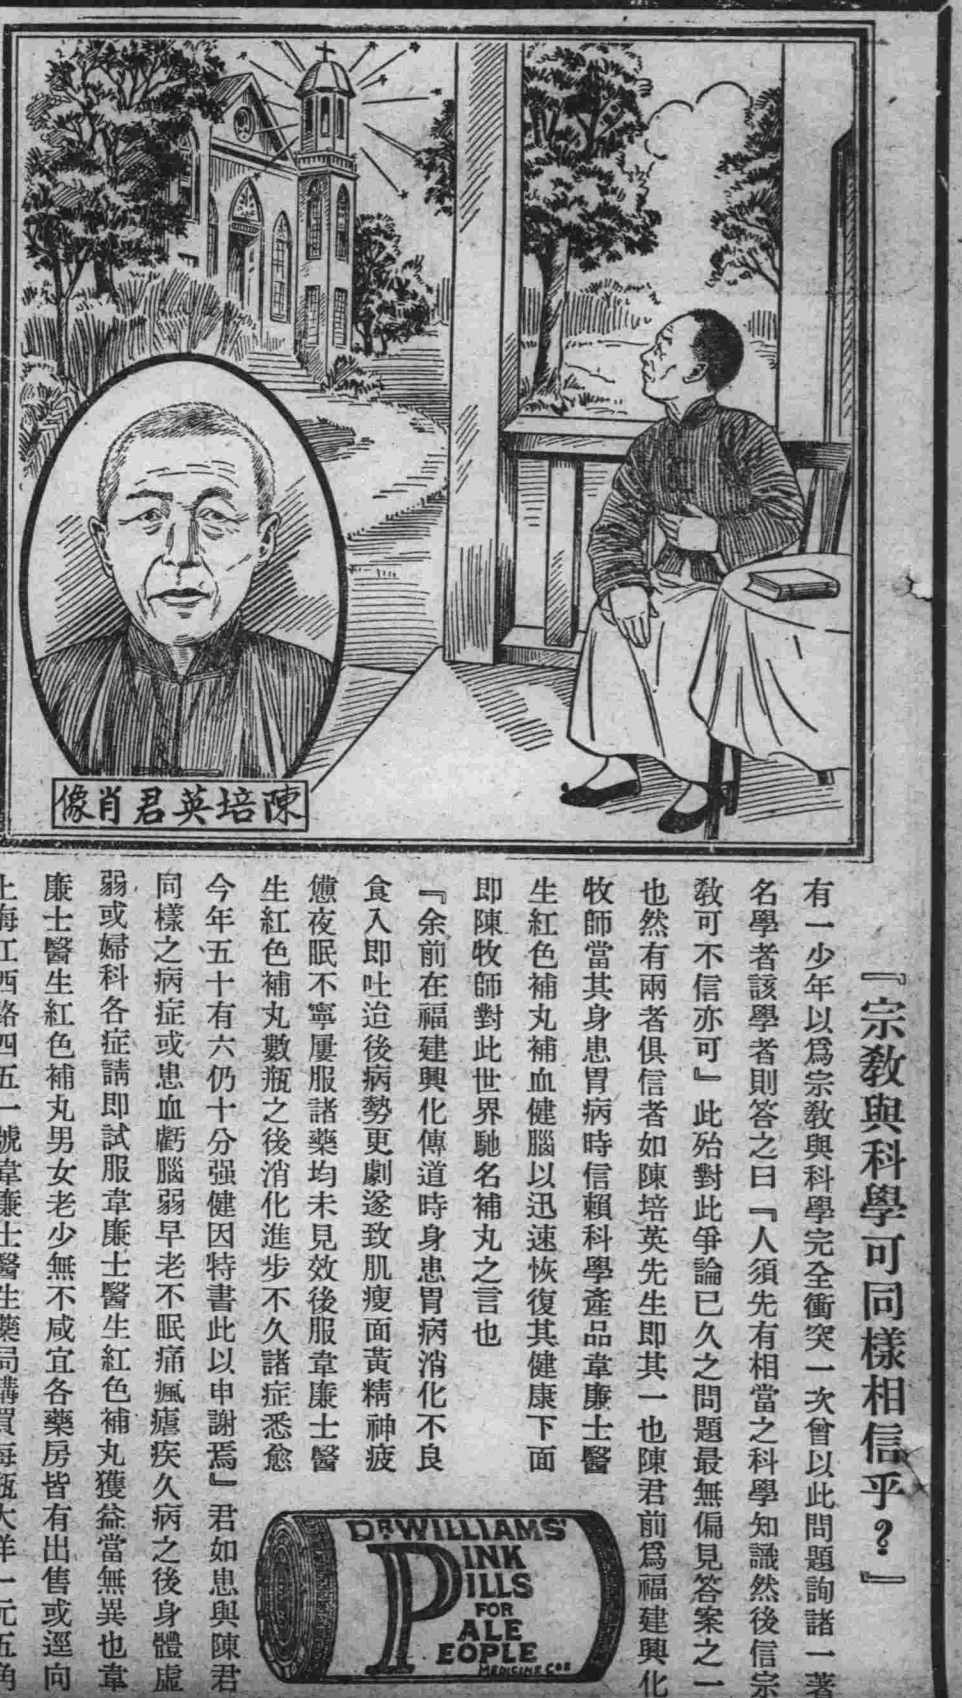 像肖君英培陳
『宗敎與科學可同樣相信乎？』
有一少年以爲宗敎與科學完全衝突一次曾以此問題詢諸一著
名學者該學者則答之曰『人須先有相當之科學知識然後信宗
敎可不信亦可』此殆對此爭論已久之問題最無偏見答案之一
也然有兩者俱信者如陳培英先生即其一也陳君前爲福建興化
牧師當其身患胃病時信賴科學產品韋廉士醫
生紅色補丸補血健腦以迅速恢復其健康下面
即陳牧師對此世界馳名補丸之言也
『余前在福建興化傳道時身患胃病消化不良
食入即吐迨後病勢更劇遂致肌瘦面黃精神疲
憊夜眠不寧屢服諸藥均未見效後服韋廉士醫
生紅色補丸數瓶之後消化進步不久諸症悉愈
今年五十有六仍十分强健因特書此以申謝焉』君如患與陳君
同樣之病症或患血虧腦弱早老不眠痛瘋瘧疾久病之後身體虛
弱或婦科各症請即試服韋廉士醫生紅色補丸獲益當無異也韋
廉士醫生紅色補丸男女老少無不咸宜各藥房皆有出售或逕向
上海江西路四五一號韋廉士醫生藥局購買每瓶大洋一元五角
DR WILLIAMS'
PINK
PILLS
FOR
PALE
PEOPLE
MEDICINE CO